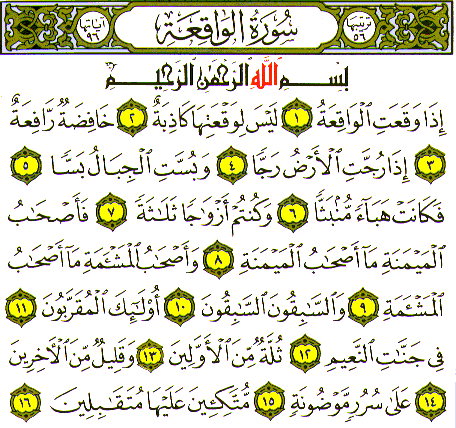 آياتها ٩٦ سُورَةُ الوَاقِعَة ترتيبها ٥٦
بِسْمِ اللَّهِ الرَّحْمَٰنِ الرَّحِيمِ
إِذَا وَقَعَتِ الْوَاقِعَةُ ١ لَيْسَ لِوَقْعَتِهَا كَاذِبَةٌ ٢ خَافِضَةٌ رَّافِعَةٌ
٣ إِذَا رُجَّتِ الْأَرْضُ رَجًّا ٤ وَبُسَّتِ الْجِبَالُ بَسًّا ٥
فَكَانَتْ هَبَاءً مُّنْبَثًّا ٦ وَكُنتُمْ أَزْوَاجًا ثَلَاثَةً ٧ فَأَصْحَابُ
الْمَيْمَنَةِ مَا أَصْحَابُ الْمَيْمَنَةِ ٨ وَأَصْحَابُ الْمَشْئَمَةِ مَا أَصْحَابُ
الْمَشْئَمَةِ ٩ وَالسَّابِقُونَ السَّابِقُونَ ١٠ أُوْلَٰئِكَ الْمُقَرَّبُونَ ١١
فِي جَنَّاتِ النَّعِيمِ ١٢ ثُلَّةٌ مِّنَ الْأَوَّلِينَ ١٣ وَقَلِيلٌ مِّنَ الْآخِرِينَ
١٤ عَلَىٰ سُرُرٍ مَّوْضُونَةٍ ١٥ مُّتَّكِئِينَ عَلَيْهَا مُتَقَابِلِينَ ١٦